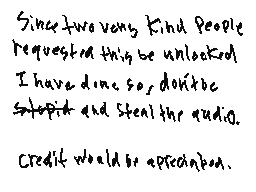 Since two very kind people
requested this be unlocked
I have done so, don't be
stupid and steal the audio.
credit would be apreciated.